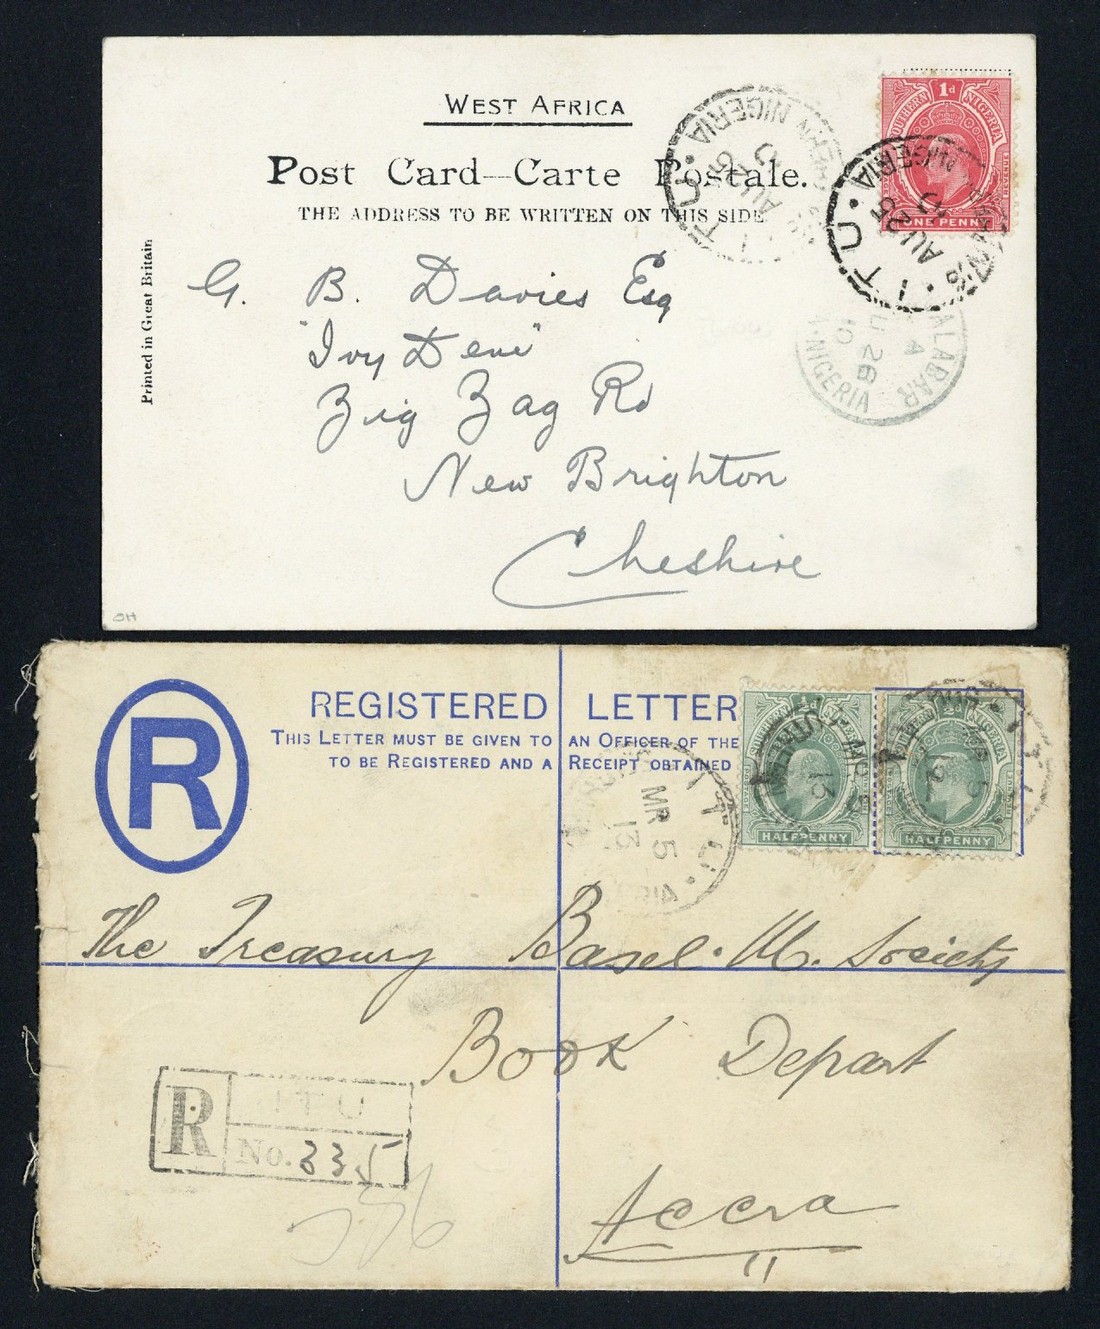 WEST AFRICA
Post Card—Carte Postale.
THE ADDRESS TO BE WRITTEN ON THIS SIDE
Printed in Great Britain
SOUTHERN NIGERIA
1d
ONE PENNY
ITU.
NIGERIA
AU 25
ITU.
NIGERIA
AU
CALABAR
A
AU 26
10
S. NIGERIA
G. B. Davies Esq
"Ivy Dene"
Zig Zag Rd
New Brighton
Cheshire
R
REGISTERED LETTER
THIS LETTER MUST BE GIVEN TO AN OFFICER OF THE
TO BE REGISTERED AND A RECEIPT OBTAINED
SOUTHERN NIGERIA
HALFPENNY
SOUTHERN NIGERIA
HALFPENNY
ITU.
MR 5
13
MR 5
13
The Treasury Basel. M. Society
Book Depart
Accra
R ITU
No. 335